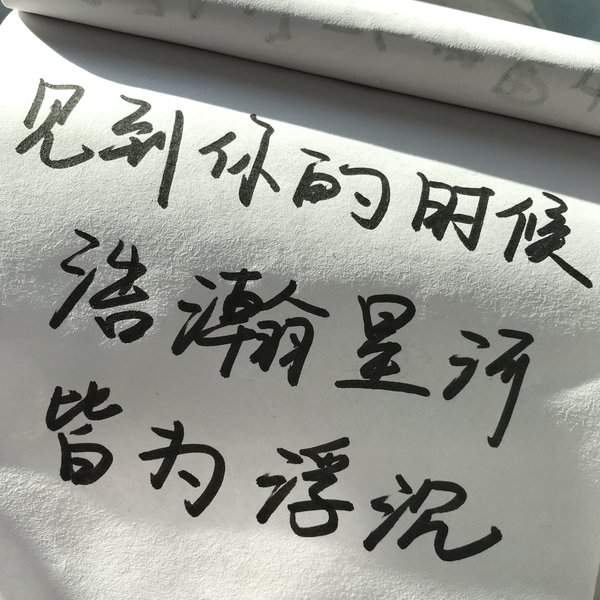 见到你的时候
浩瀚星河
皆为浮沉